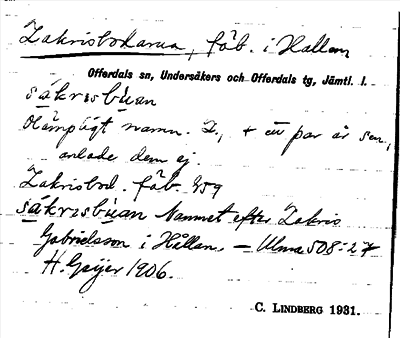 Zakrisbodarna, fäb. i Hallen
Offerdals sn, Undersåkers och Offerdals tg, Jämtl. l.
sákrisbùan
Olämpligt namn. Z., + ett par år sen,
anlade dem ej.
Zakrisbod. fäb. 859
sákrisbùan Namnet efter Zakris
Gabrielsson i Hållan. — Ulma 508:27
H. Geijer 1906.
C. LINDBERG 1931.